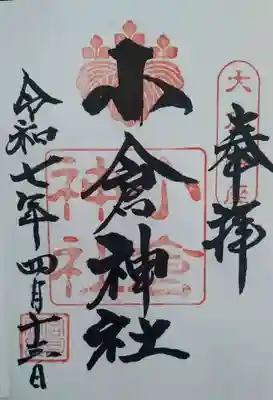 奉拝
小倉神社
小倉
神社
令和七年四月十三日